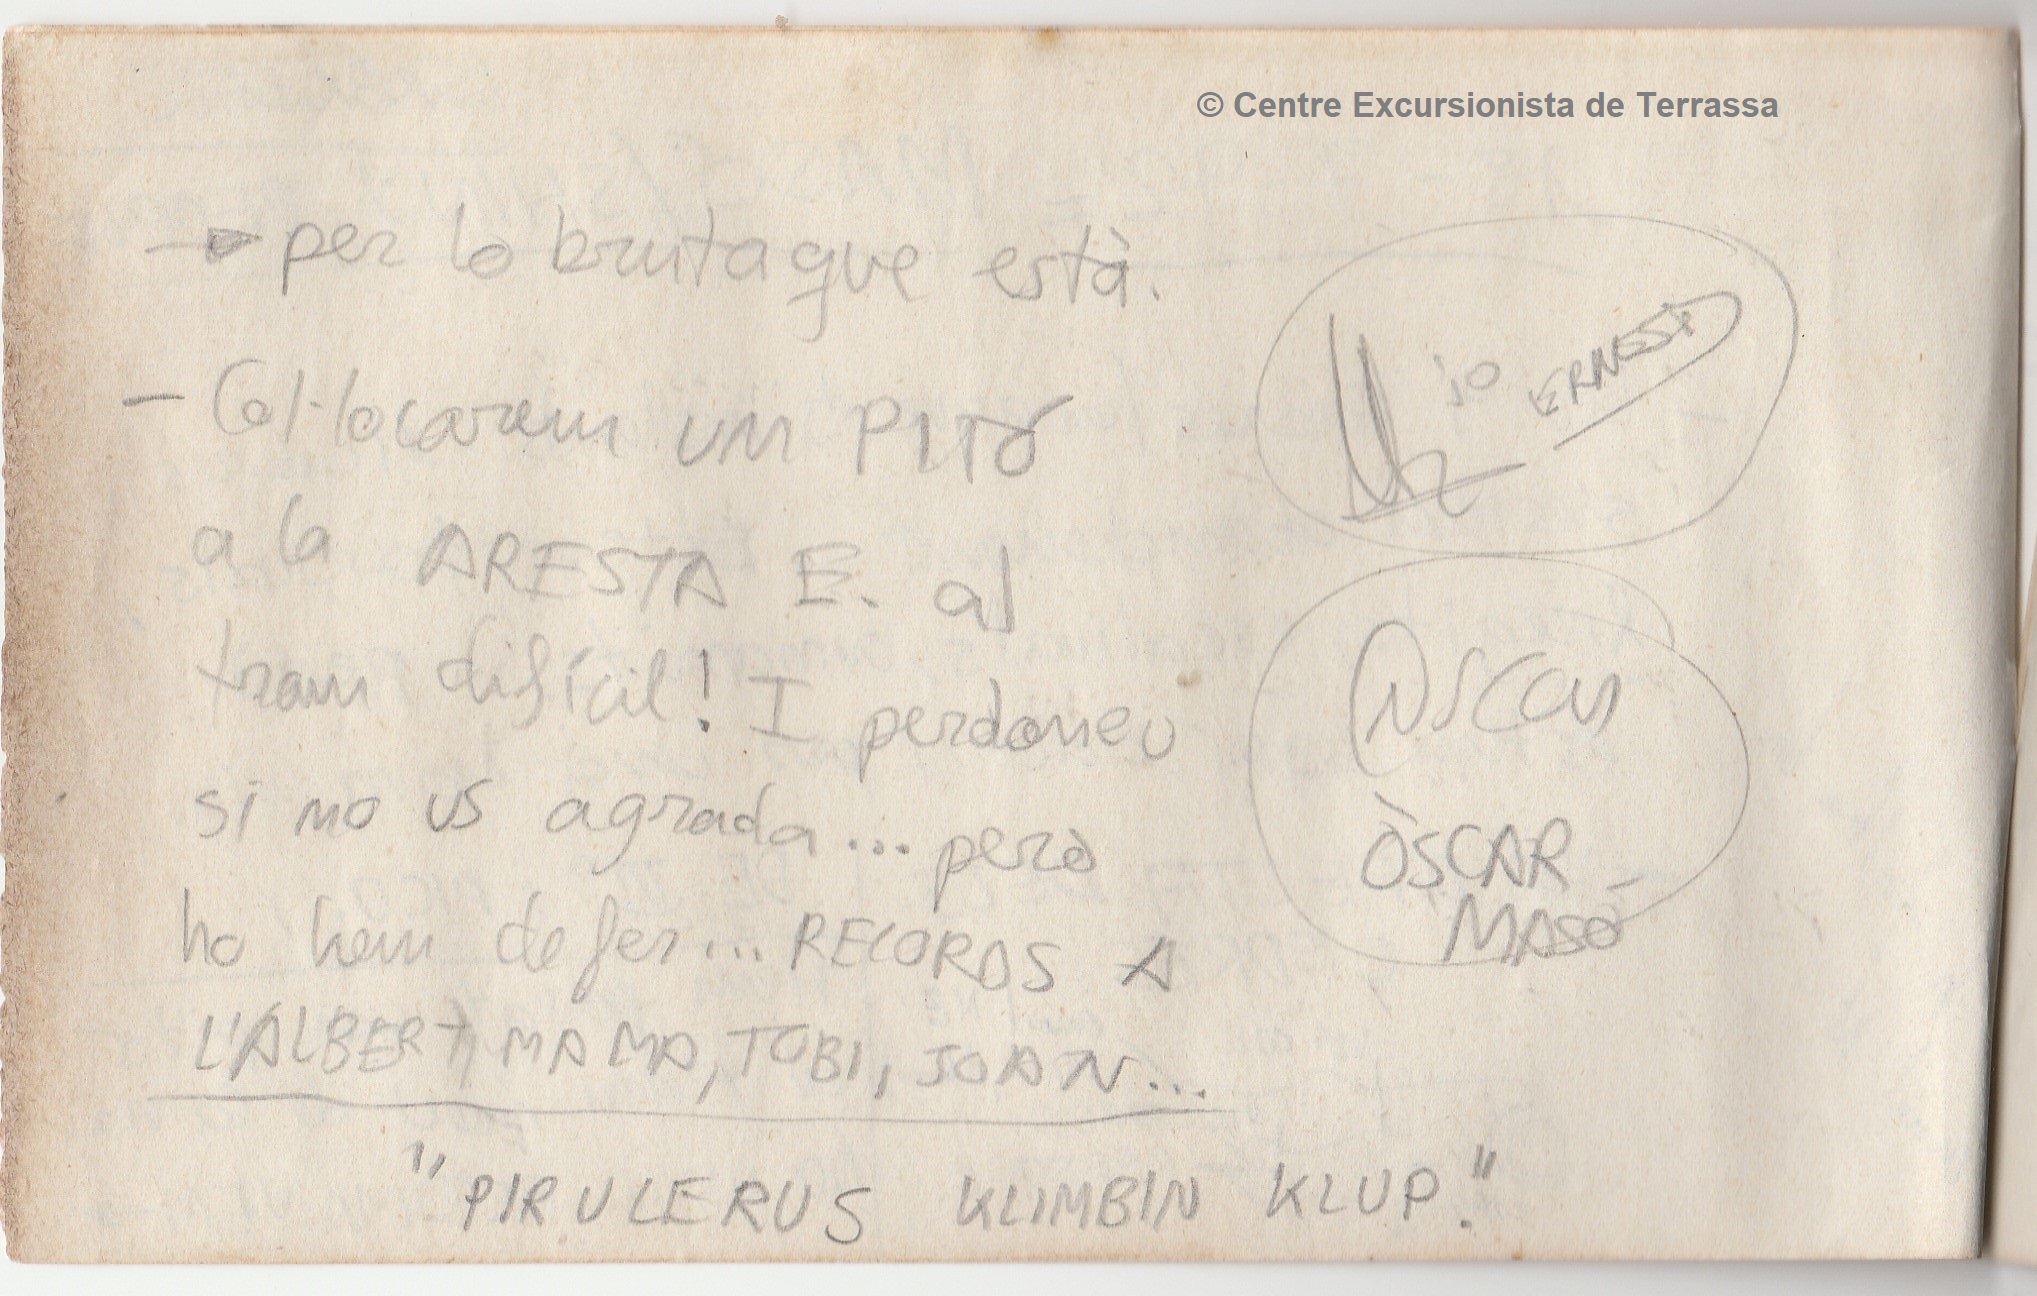 © Centre Excursionista de Terrassa
per lo bruta que està.
- Col·locarem un PITÓ
a la ARESTA E. al
tram difícil! I perdoneu
si no us agrada... però
ho hem de fer... RECORDS A
L'ALBERT, MAMA, TOBI, JOAN...
"PIRULERUS KLIMBIN KLUP."
jo
ERNEST
ÒSCAR
MASÓ